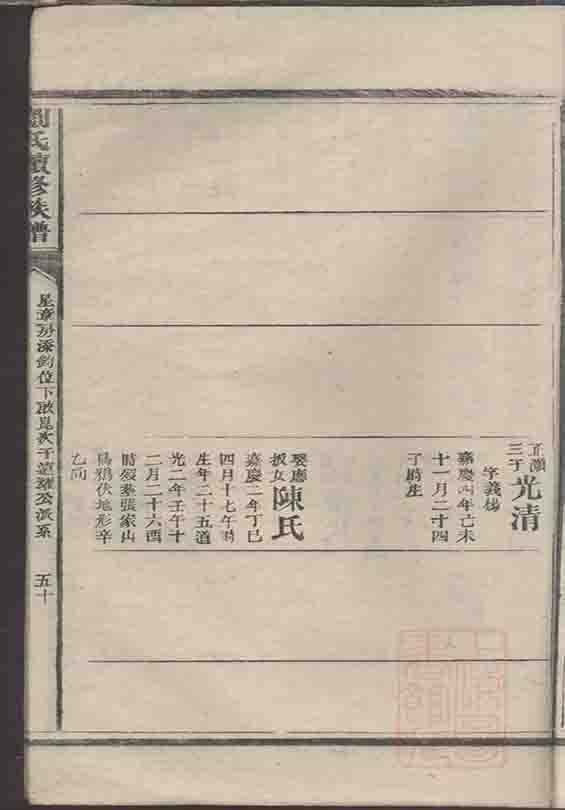 正灝三子光清
字義揚
嘉慶四年己未
十一月二十四
丁時生
娶應拔女陳氏
嘉慶二年丁巳
四月十七午時
生年二十五道
光二年壬午十
二月二十六酉
時歿葬張家山
烏鴉伏地形辛
乙向
劉氏續修族譜
星章房添鈞位下啟崑次子道雍公派系
五十